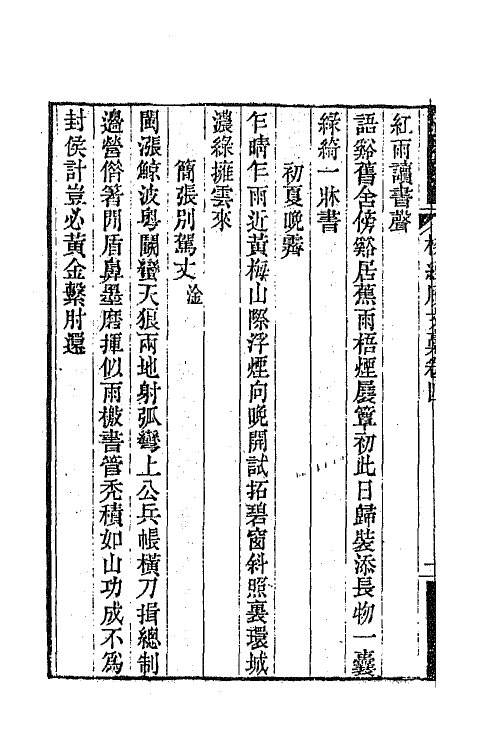 紅雨讀書聲
語谿舊舍傍谿居蕉雨梧煙展簟初此日歸裝添長物一囊
綠綺一牀書
初夏晚霽
乍晴乍雨近黃梅山際浮煙向晚開試拓碧窗斜照裏環城
濃綠擁雲來
簡張別駕丈淦
閩漲鯨波粵鬬蠻天狼兩地射弧彎上公兵帳橫刀揖總制
邊營借箸閒盾鼻墨磨揮似雨檄書管禿積如山功成不為
封侯計豈必黃金繫肘還
卷四
二